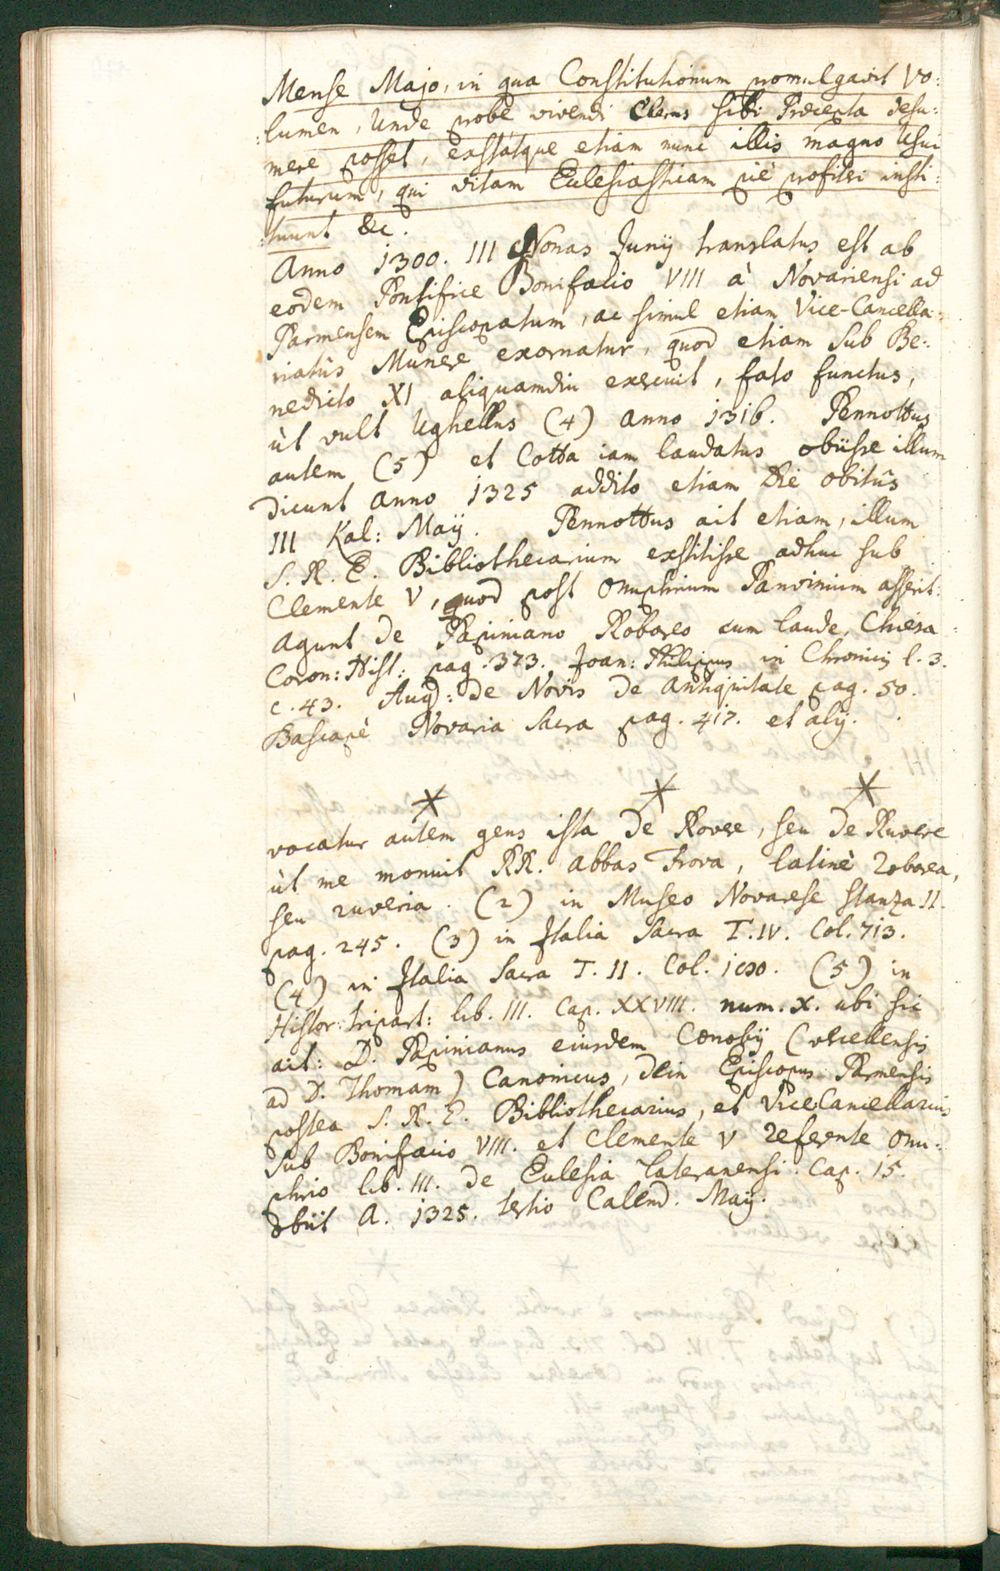 Mense Majo, in qua Constitutionum promulgavit vo:
:lumen, Unde probe vivendi Clerus sibi Præcepta desu:
mere posset, exstatque etiam nunc illis magno Usui
futurum, qui vitam Eclesiasticam piè profiteri insti:
:tuunt &c.
Anno 1300. III Nonas Junij translatus est ab
eodem Pontifice Bonifacio VIII à Novariensi ad
Parmensem Episcopatum, ac simul etiam Vice-Cancella:
riatûs Munere exornatur, quod etiam sub Be:
nedicto XI aliquamdiu exercuit, fato functus,
ùt vult Ughellus (4) anno 1316. Pennottus
autem (5) et Cotta iam laudatus obiisse illum
dicunt anno 1325 addito etiam Die obitûs
III Kal: Maij. Pennottus ait etiam, illum
S. R. E. Bibliothecarium exstitisse adhuc sub
Clemente V, quod post Onuphrium Panvinium asserit.
Agunt de Papiniano Roboreo cum laude, Chiesa
Coron: Hist: pag. 373. Joan: Philippus in Chronicis l. 3.
c. 43. Aug: de Novis de Antiquitate pag. 50.
Bascapè Novaria Sacra pag. 417. et alij.
vocatur autem gens ista De Rovere, seu De Ruvere
ùt me monuit RR. Abbas Frova, latinè Roborea,
seu ruveria. (2) in Museo Novarese Stanza II.
pag. 245. (3) in Italia Sacra T. IV. Col. 713.
(4) in Italia Sacra T. II. Col.
(5) in
Histor: tripart: lib. III. Cap. XXVIII. num. X. ubi sic
ait: D. Papinianus eiusdem Cœnobij (Vercellensis
ad D. Thomam) Canonicus, Dein Episcopus Parmensis
postea S. R. E. Bibliothecarius, et Vice Cancellarius
sub Bonifacio VIII. et Clemente V referente Onu:
phrio lib. III. de Eclesia Lateranensi. Cap. 15.
obiit A. 1325. tertio Calend. Maij.